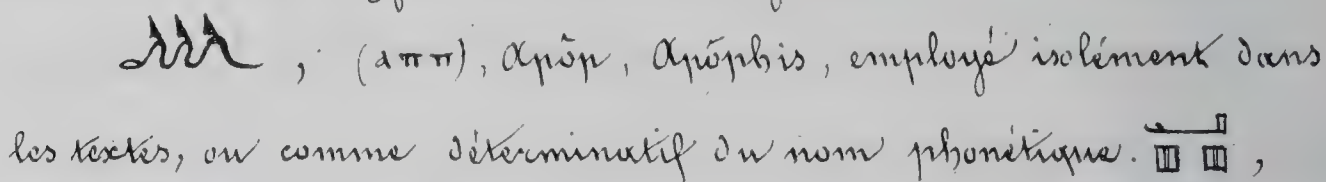 , (aππ), Apôp, Apôphis, employé isolément dans
les textes, ou comme déterminatif du nom phonétique. 𓂝𓊪𓊪,